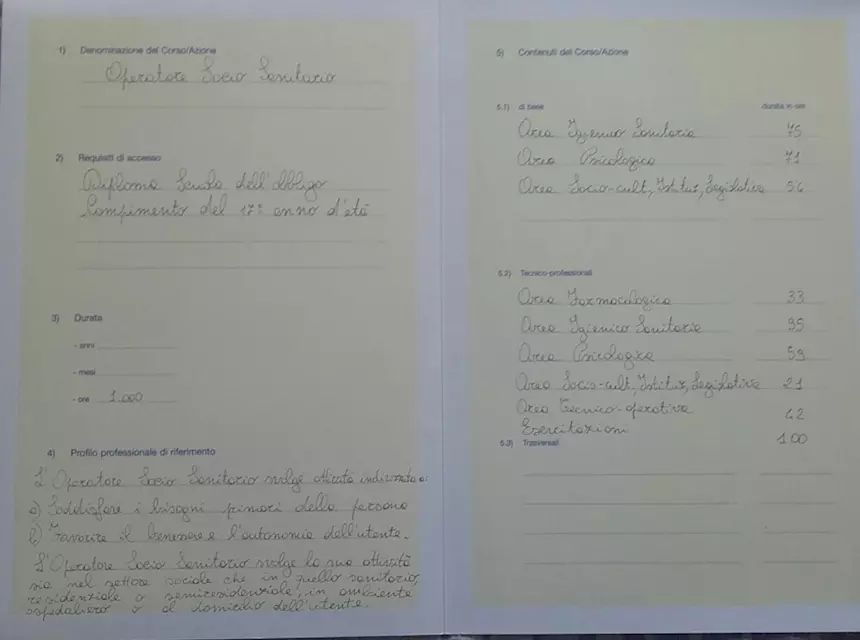 1) Denominazione del Corso/Azione
Operatore Socio Sanitario
2) Requisiti di accesso
Diploma Scuola dell'obbligo
Compimento del 17° anno d'età
3) Durata
- anni
- mesi
- ore 1.000
4) Profilo professionale di riferimento
L'Operatore Socio Sanitario svolge attività indirizzata a:
a) Soddisfare i bisogni primari della persona
b) Favorire il benessere e l'autonomia dell'utente.
L'Operatore Socio Sanitario svolge la sua attività
sia nel settore sociale che in quello sanitario,
residenziale o semiresidenziale, in ambiente
ospedaliero o al domicilio dell'utente.
5) Contenuti del Corso/Azione
5.1) di base durata in ore
Area Igienico Sanitaria 75
Area Psicologica 71
Area Socio-cult, Istituz, Legislativa 56
5.2) Tecnico-professionali
Area Farmacologica 33
Area Igienico Sanitaria 95
Area Psicologica 59
Area Socio-cult, Istituz, Legislativa 21
Area Tecnico-operativa 42
Esercitazioni 100
5.3) Trasversali